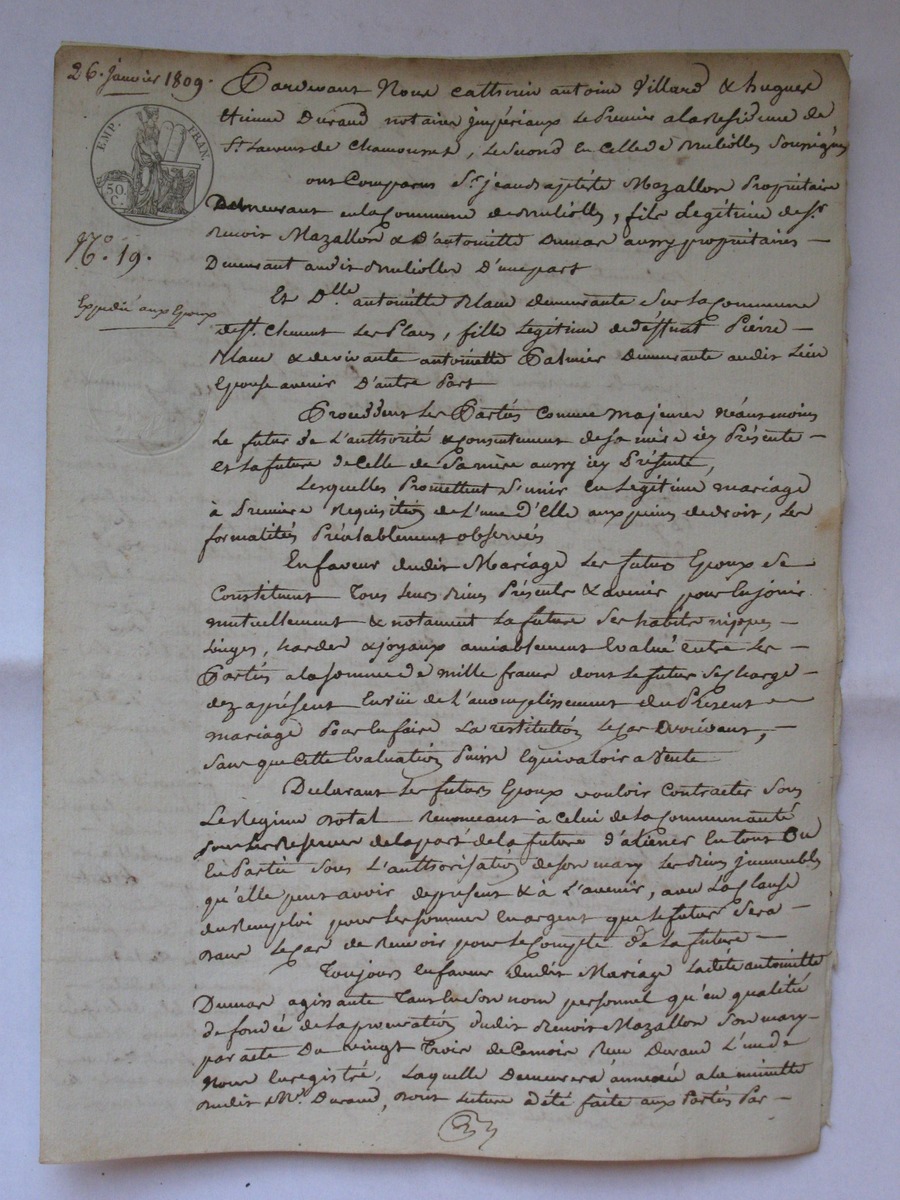 26. janvier 1809.
EMP. FRAN.
50 C.
N.° 19.
Expédié aux Epoux
Pardevant Nous catherin antoine Villard & hugues
Etienne Durand notaires jmpériaux Le Premier ala résidence de
St. Laurent de Chamousset, Le second en Celle de Bruliolles soussignés
ont Comparus Sr. jean baptiste Mazallon Propriétaire
Demeurant en la Commune de Bruliolles, fils Légitime de Sr.
Benoit Mazallon & D'antoinette Dumas aussy propriétaires —
Demeurant audit Bruliolles D'une part
Et Dlle antoinette Blanc demeurante sur la Commune
de St. Clément Les Places, fille Légitime de déffunt Pierre —
Blanc & de vivante antoinette Palmier Demeurante audit Lieu
Epouse avenir D'autre Part
Procèddent Les Parties comme majeures Néantmoins
Le futur de L'authorité & Consentement de sa mère icy Présente —
et La future de Celle de sa mère aussy icy Présente,
Lesquelles Promettent S'unir en Légitime mariage
à Première Requisition de L'une D'elle aux peines de droit, Les
formalités Préalablement observées
En faveur dudit Mariage Les futurs Epoux se
Constituent Tous Leurs Biens Présents & avenir pour en jouir
mutuellement & notament La future ses habits nippes —
Linges, hardes & joyaux amiablement Evalué entre Les —
Parties ala somme de mille francs dont Le futur se charge —
dez aprésent En vüe de L'accomplissement du Présent —
mariage Pour en faire La restitution Le Cas Arrivant, —
sans que Cette Evaluation Puisse Equivaloir a Vente
Déclarant Les futurs Epoux vouloir Contracter sous
Le Régime Dotal Renonceant à Celui de la Communauté
sous Les Réserves de la part de la future d'aliéner En tout Ou
En Partie sous L'authorisation de son mary Les Biens jmmeubles
qu'elle peut avoir de présent & à L'avenir, avec La Clause
du Remploi pour Les sommes En argent que Le futur sera —
dans Le Cas de Recevoir pour Le Compte de La future —
Toujours En faveur dudit Mariage Ladite antoinette
Dumas agissante Tant En son nom personnel qu'en qualité
de fondée de la procuration dudit Benoit Mazallon son mary —
par acte Du vingt Trois de Ce mois Reçu Durand L'un de
Nous Enregistré, Laquelle Demeurera annexée ala minutte
dudit Me. Durand, dont Lecture a été faite aux Parties Par —